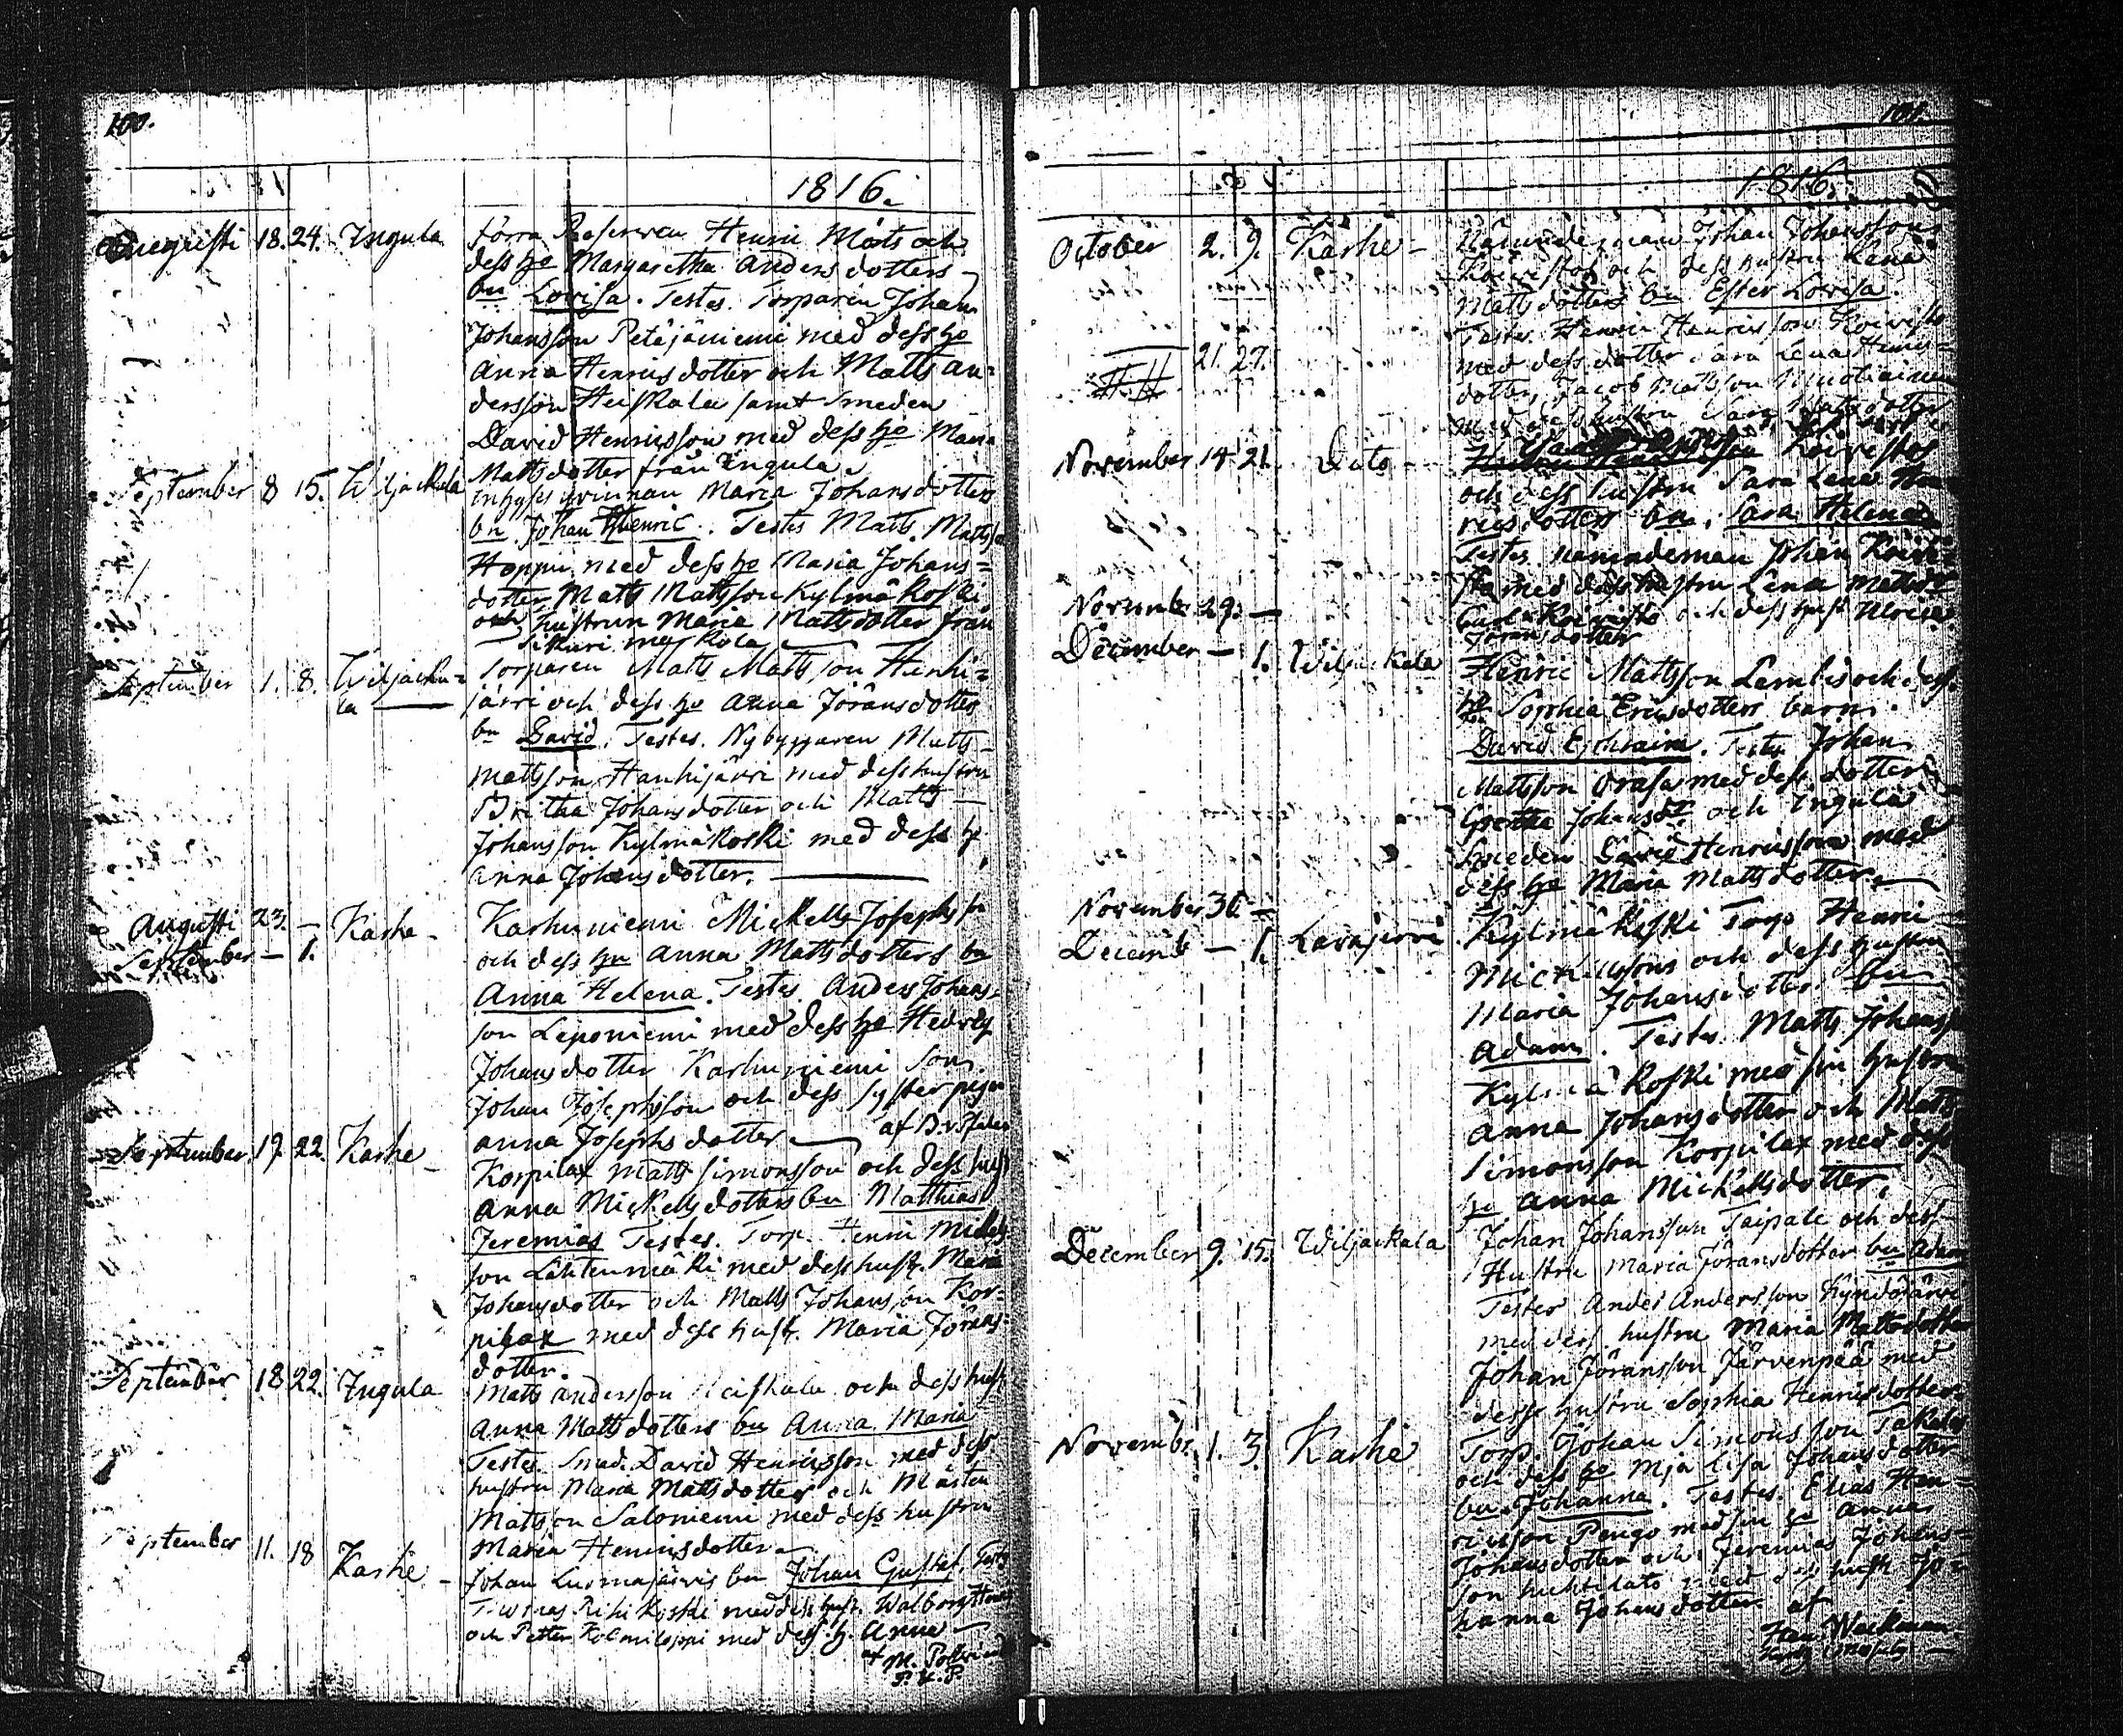 100.
1816.
Augusti 18. 24. Ingula
Förra Reserven Henric Mats och
dess ho Margaretha Anders dotters
bn Lovisa. Testes. Torparen Johan
Johansson Petäjäniemi med dess ho
Anna Henricsdotter och Matts An=
dersson Heiskala samt Smeden
David Henricsson med dess ho Maria
Mattsdotter från Ingula.
September 8 15. Wiljackala
inhyses qvinnan Maria Johansdotters
bn Johan Henric. Testes Matts Matts
Hoppu med dess ho Maria Johans=
dotter, Matts Mattsson Kylmäkoski
och hustrun Maria Mattsdotter från
September 1. 8. Wiljacka=
la
Torparen Matts Mattsson Hanhi=
järvi och dess ho Anna Jöransdotters
bn David. Testes. Nybyggaren Matts
Mattsson Hanhijärvi med dess hustru
Britha Johansdotter och Matts
Johansson Kylmäkoski med dess h
Anna Johansdotter.
Augusti 23. —
September — 1. Karhe
Karhuniemi Mickells Josephs
och dess hu Anna Mattsdotters bn
Anna Helena. Testes. Anders Johans=
son Leponiemi med dess ho Hedvig
Johansdotter Karhuniemi Son
Johan Josephsson och dess syster pigan
Anna Josephsdotter
September. 17 22. Karhe
Korpilax Matts Simonsson och dess hust
Anna Mickellsdotters bn Matthias
Jeremias Testes. Torp. Henric Mickels
son Lähtenmäki med dess hust. Maria
Johansdotter och Matts Johansson Kor=
pilax med dess hust. Maria Jörans=
dotter.
September 18 22. Ingula
Matts Andersson Heiskala och dess hust
Anna Mattsdotters bn Anna Maria
Testes. Smed. David Henricsson med dess
hustru Maria Mattsdotter och Mårten
Mattsson Saloniemi med dess hustru
Maria Henricsdotter
September 11. 18 Karhe
Johan Luomajärvis bn Johan Gustaf. Test
Riihikoski med dess hust. Walborg
och Petter Kolmiloppi med dess h. Anna
101.
1816.
October 2. 9. Karhe
Nämndeman Johan Johanssons
Koivistos och dess hustru Lena
Mattsdotters bn Ester Lovisa.
Testes. Henric Henricsson Koivisto
21. 27.
med dess dotter Sara Lena Henrics=
dotter, Jacob Mattsson
med dess hustru Sara Mattsdotter
November 14 21. Dato
Koivistos
och dess hustru Sara Lena Hen
ricsdotters bn. Sara Helena
Testes. nämndeman Johan Koivi=
sto med dess hustru Lena Mattsdr
Carl Koivisto och dess hust Ulrica
Jöransdotter
November 29. —
December — 1. Wiljackala
Henric Mattsson Lembis och dess
ho Sophia Ericsdotters barn.
David Ephraim. Testes Johan
Mattsson Orasa med dess dotter
Gretha Johansdr och Ingula
Smeden David Henricsson med
dess ho Maria Mattsdotter.
November 30. —
Decemb — 1. Lavajervi
Kylmäkoski Torp Henric
Mickellssons och dess hustru
Maria Johansdotters bn
Adam. Testes. Matts Johanss
Kylmäkoski med sin hustru
Anna Johansdotter och Matts
Simonsson Korpilax med dess
ho Anna Mickellsdotter.
December 9. 15. Wiljackala
Johan Johansson Taipale och dess
Hustru Maria Jöransdotter bn Adam
Testes Anders Andersson
med dess hustru Maria Mattsdotter
Johan Jöransson Järvenpää med
dess hustru Sophia Henricsdotter
Novembr. 1. 3. Karhe
Torp. Johan Simonsson
och dess ho Mja Lisa Johansdotter
bn. Johanna. Testes. Elias Hen=
ricsson Pengo med sin ho Anna
Johansdotter och Jeremias Johans=
son Huhtilato med dess hust. Jo=
hanna Johansdotter af